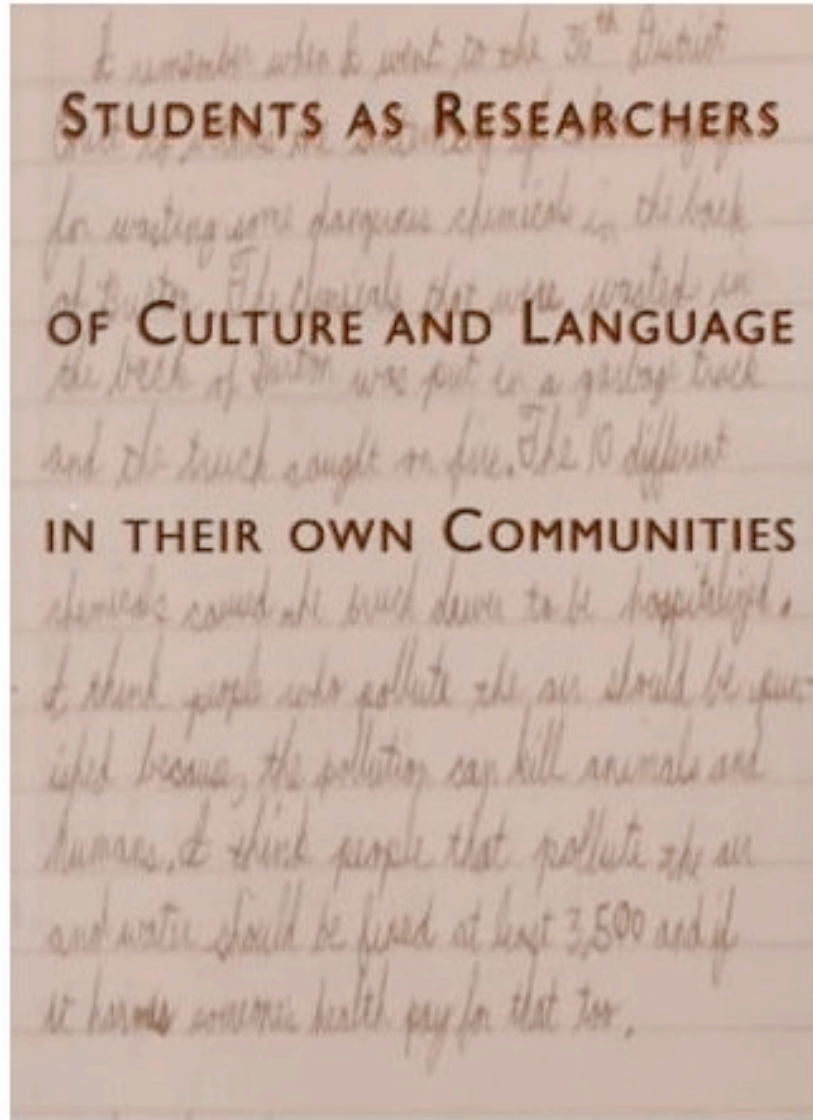 I remember when I went to the 36th District
STUDENTS AS RESEARCHERS
for wasting some dangerous chemicals in the back
of Burton. The chemicals that were wasted in
OF CULTURE AND LANGUAGE
the back of Burton was put in a garbage truck
and the truck caught on fire. The 10 different
IN THEIR OWN COMMUNITIES
chemicals caused the truck driver to be hospitalized.
I think people who pollute the air should be pun-
ished because, the pollution can kill animals and
humans. I think people that pollute the air
and water should be fined at least 3,500 and if
it harms someones health pay for that too.